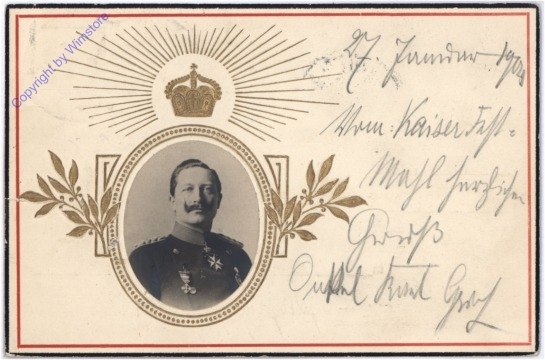 Copyright by Winstore
27 Januar 190
Vom Kaiser Fest=
Mahl herzlichen
Gruß
Onkel Karl Graf